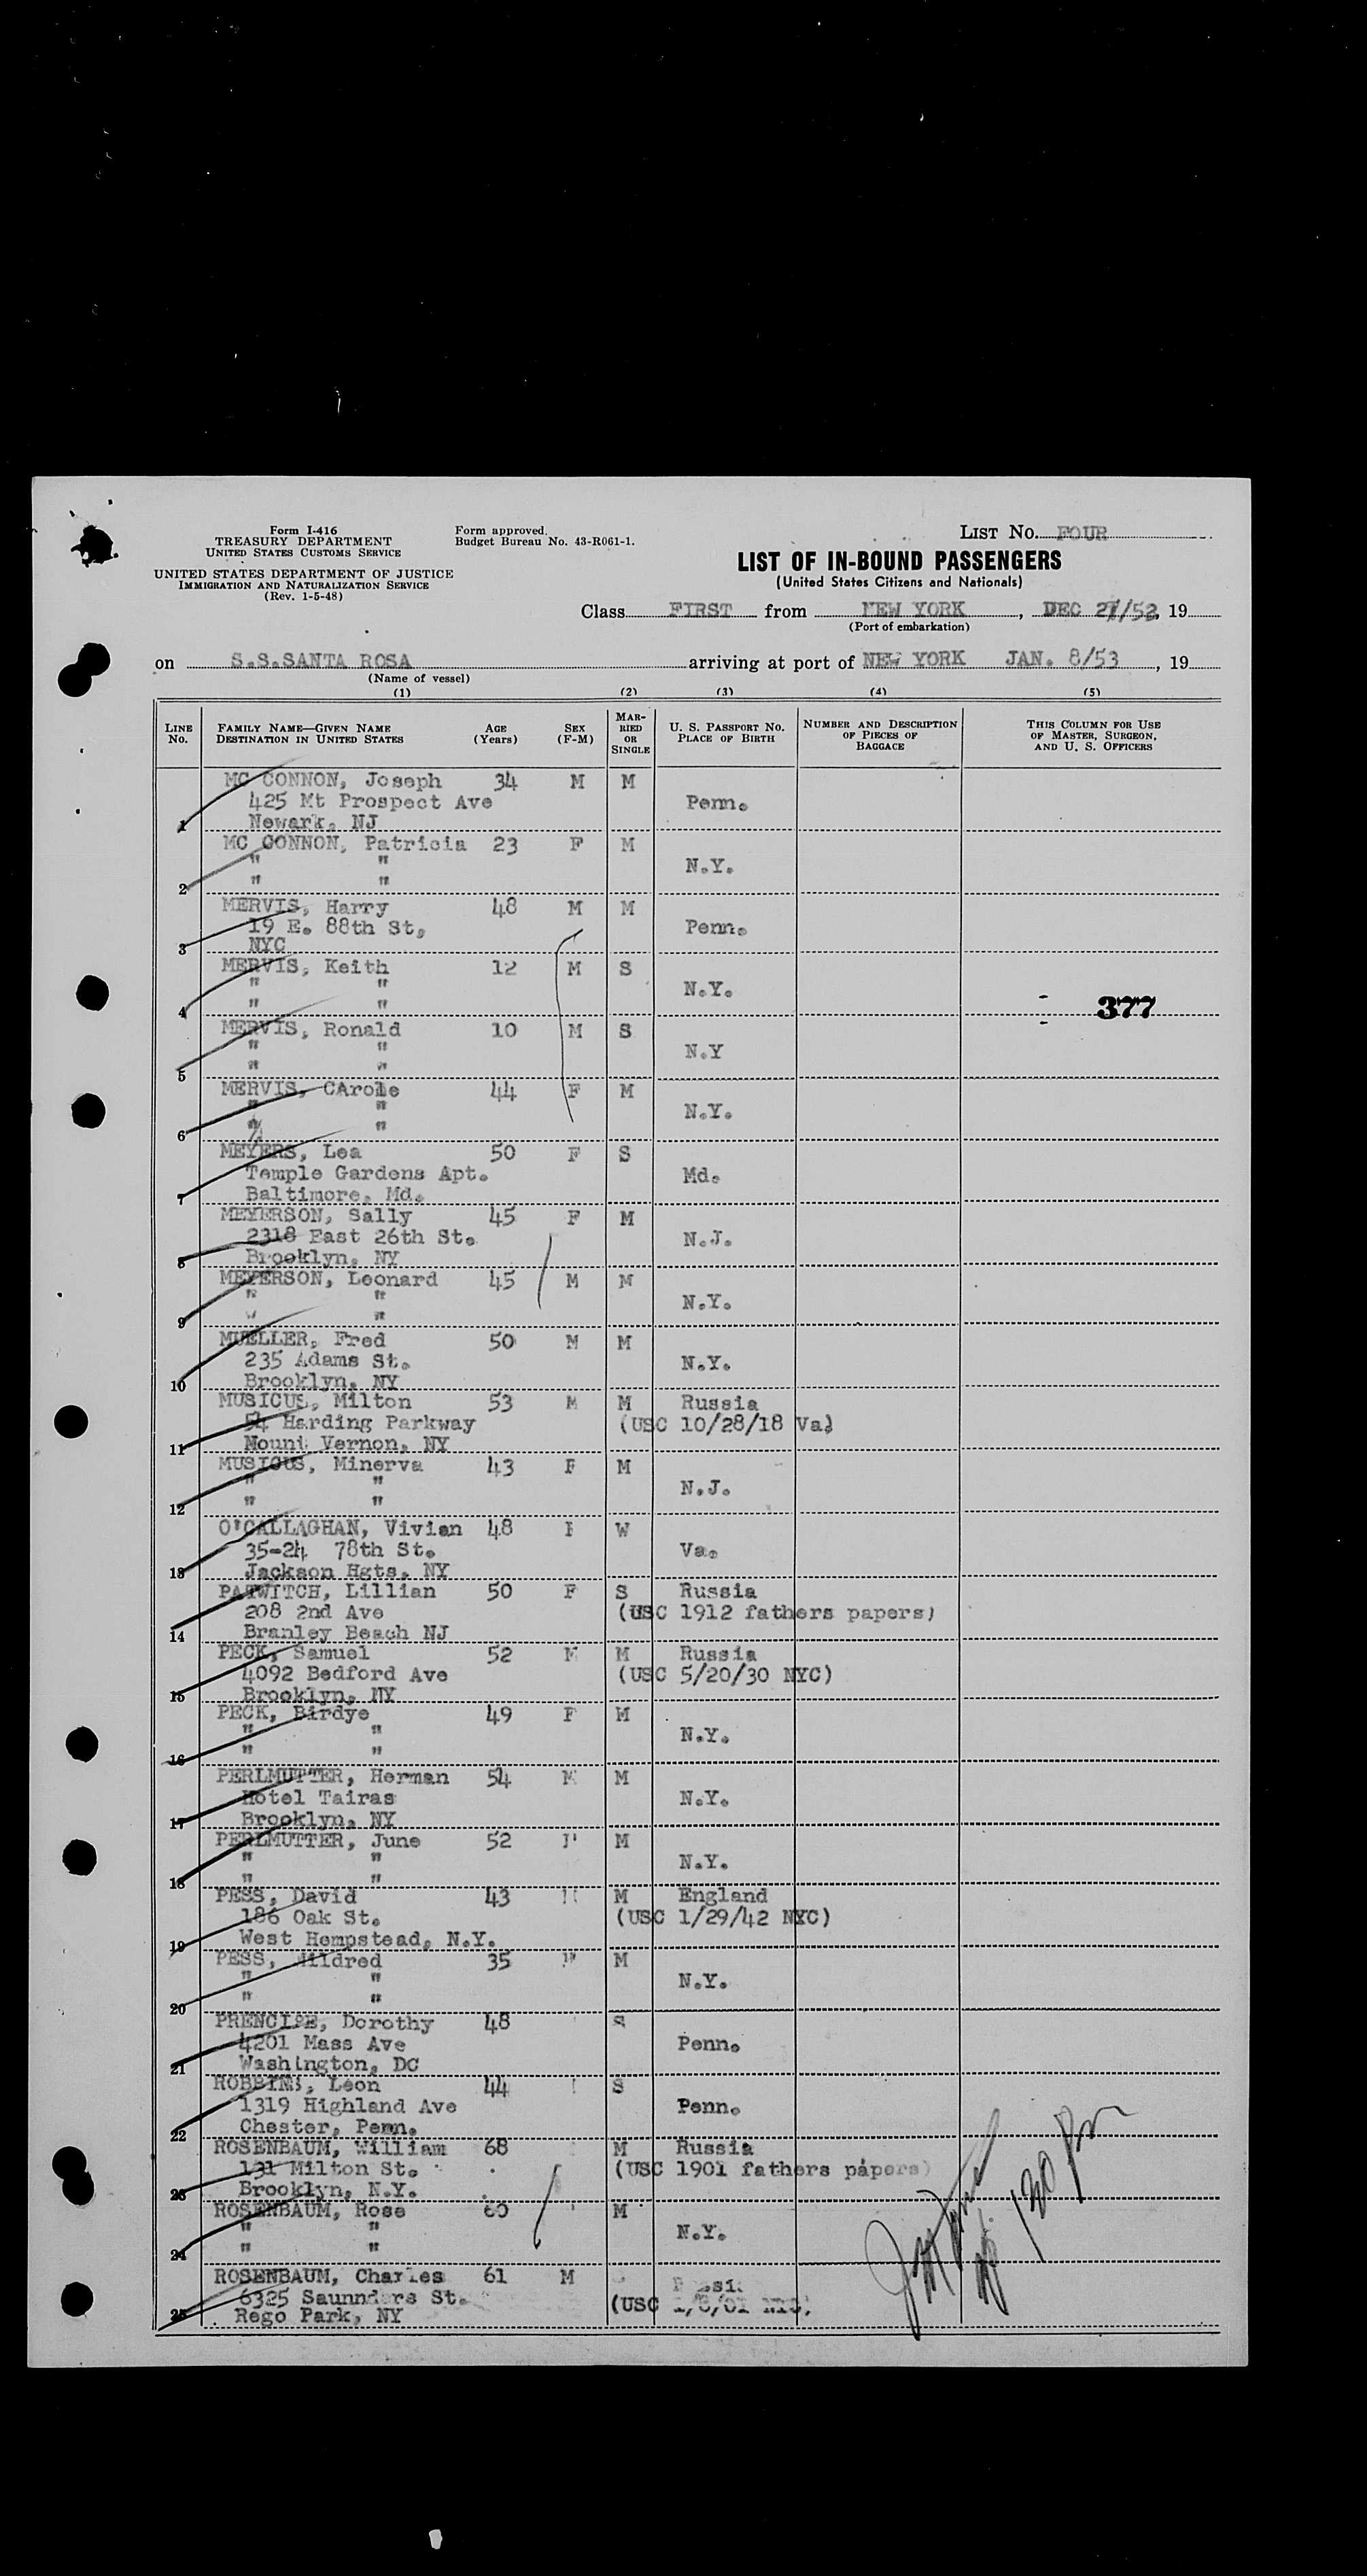 Form I-416
TREASURY DEPARTMENT
UNITED STATES CUSTOMS SERVICE
UNITED STATES DEPARTMENT OF JUSTICE
IMMIGRATION AND NATURALIZATION SERVICE
(Rev. 1-5-48)
Form approved.
Budget Bureau No. 43-R061-1.
LIST NO. FOUR
LIST OF IN-BOUND PASSENGERS
(United States Citizens and Nationals)
Class FIRST from NEW YORK, DEC 27/52, 19
(Port of embarkation)
on S.S.SANTA ROSA arriving at port of NEW YORK JAN. 8/53, 19
(Name of vessel)
(1) (2) (3) (4) (5)
LINE NO. FAMILY NAME—GIVEN NAME DESTINATION IN UNITED STATES AGE (Years) SEX (F-M) MARRIED OR SINGLE U. S. PASSPORT NO. PLACE OF BIRTH NUMBER AND DESCRIPTION OF PIECES OF BAGGAGE THIS COLUMN FOR USE OF MASTER, SURGEON, AND U. S. OFFICERS
MC CONNON, Joseph 34 M M
425 Mt Prospect Ave Penn.
1 Newark, NJ
MC CONNON, Patricia 23 F M
" " N.Y.
2 " "
MERVIS, Harry 48 M M
19 E. 88th St, Penn.
3 NYC
MERVIS, Keith 12 M S
" " N.Y.
4 " " 377
MERVIS, Ronald 10 M S
" " N.Y
5 " "
MERVIS, CArole 44 F M
" " N.Y.
6 " "
MEYERS, Lea 50 F S
Temple Gardens Apt. Md.
7 Baltimore, Md.
MEYERSON, Sally 45 F M
2318 East 26th St. N.J.
8 Brooklyn, NY
MEYERSON, Leonard 45 M M
" " N.Y.
9 " "
MUELLER, Fred 50 M M
235 Adams St. N.Y.
10 Brooklyn, NY
MUSICUS, Milton 53 M M Russia
54 Harding Parkway (USC 10/28/18 Va)
11 Mount Vernon, NY
MUSICUS, Minerva 43 F M
" " N.J.
12 " "
O'CALLAGHAN, Vivian 48 F W
35-24 78th St. Va.
13 Jackson Hgts, NY
PATWITCH, Lillian 50 F S Russia
208 2nd Ave (USC 1912 fathers papers)
14 Branley Beach NJ
PECK, Samuel 52 M M Russia
4092 Bedford Ave (USC 5/20/30 NYC)
15 Brooklyn, NY
PECK, Birdye 49 F M
" " N.Y.
16 " "
PERLMUTTER, Herman 54 M M
Hotel Tairas N.Y.
17 Brooklyn, NY
PERLMUTTER, June 52 F M
" " N.Y.
18 " "
PESS, David 43 M M England
186 Oak St. (USC 1/29/42 NYC)
19 West Hempstead, N.Y.
PESS, Mildred 35 F M
" " N.Y.
20 " "
PRENCIPE, Dorothy 48 S
4201 Mass Ave Penn.
21 Washington, DC
ROBBINS, Leon 44 S
1319 Highland Ave Penn.
22 Chester, Penn.
ROSENBAUM, William 68 M Russia
131 Milton St. (USC 1901 fathers papers)
23 Brooklyn, N.Y.
ROSENBAUM, Rose 60 M
" " N.Y.
24 " "
ROSENBAUM, Charles 61 M
6325 Saunnders St. (USC
25 Rego Park, NY
120 pm